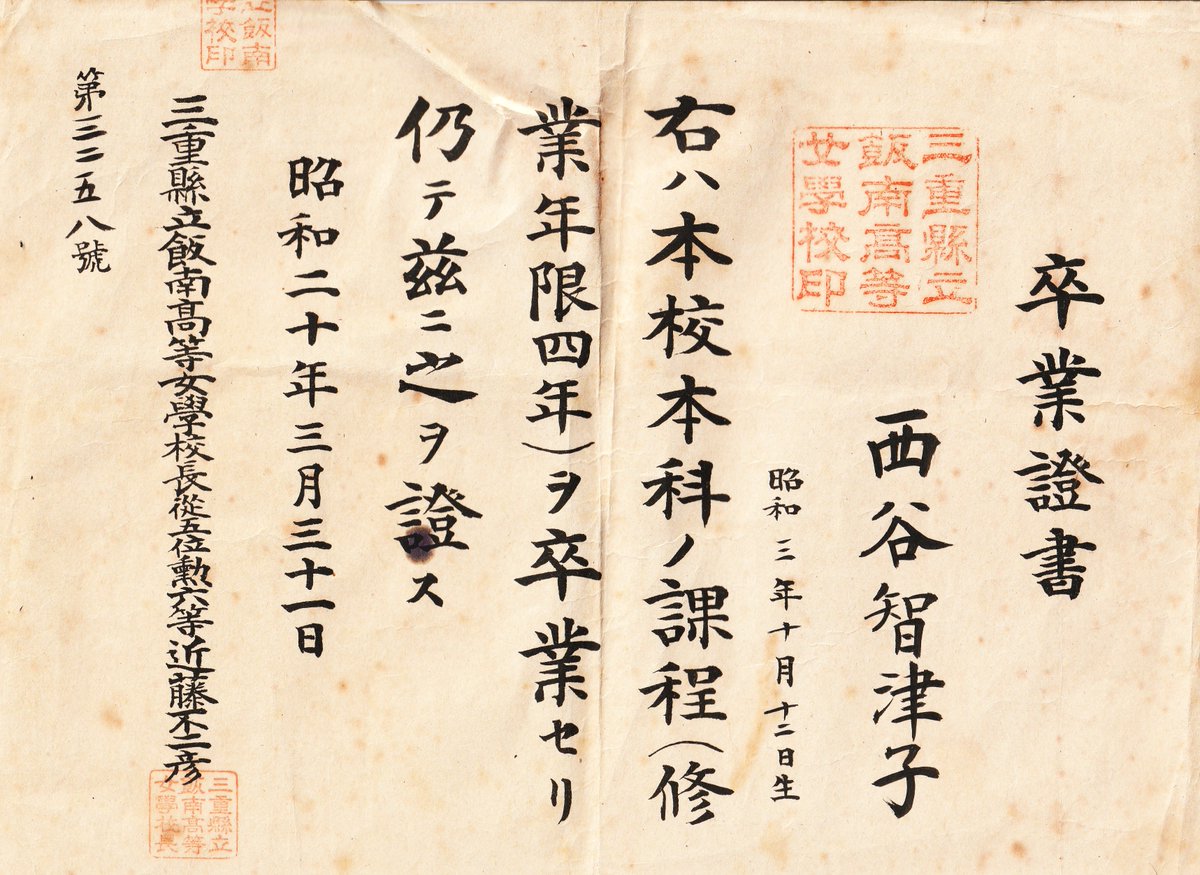 卒業證書
三重縣立
飯南高等
女學校印
西谷智津子
昭和三年十月十二日生
右ハ本校本科ノ課程(修
業年限四年)ヲ卒業セリ
仍テ茲ニ之ヲ證ス
昭和二十年三月三十一日
三重縣立飯南高等女學校長從五位勲六等近藤不二彦
三重縣立
飯南高等
女學校長
第三二五八號
飯南
學校印